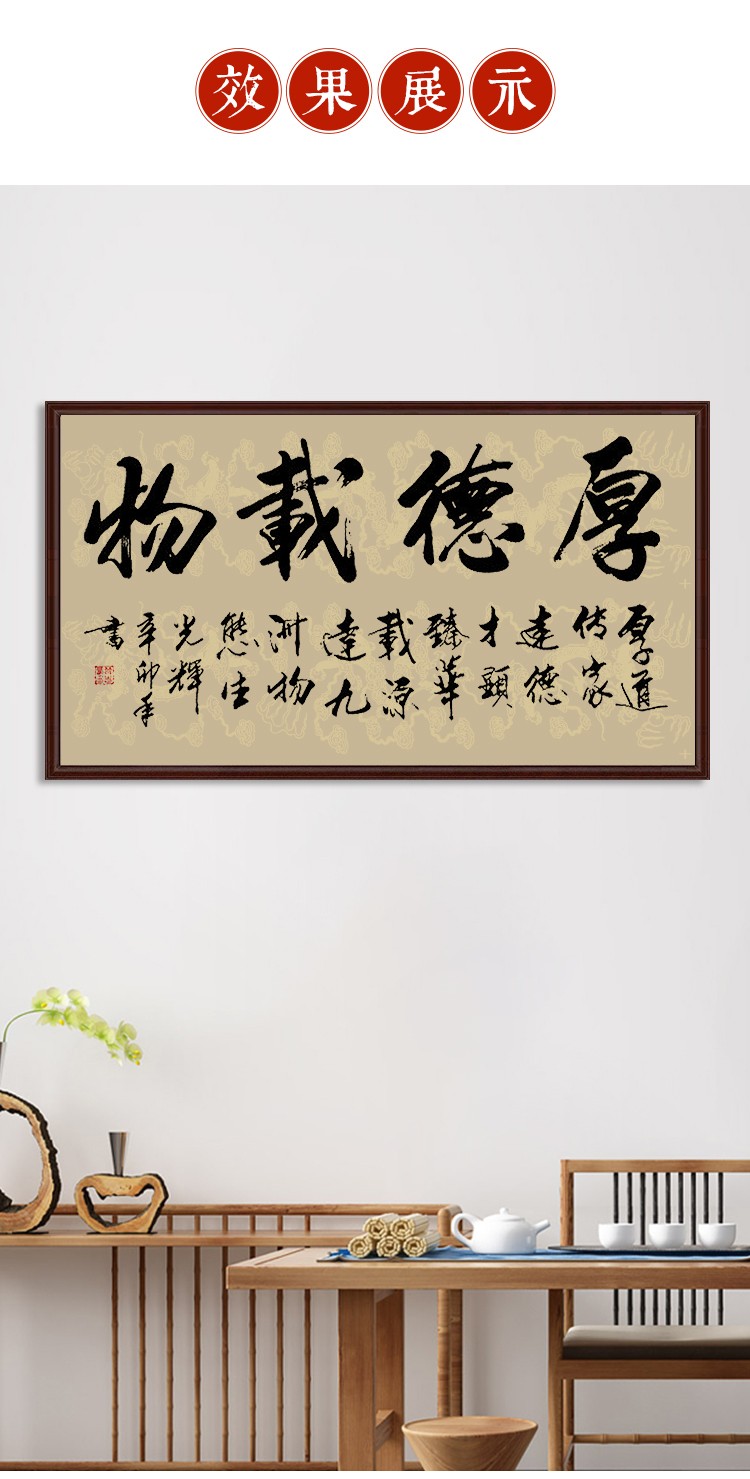 效果展示
厚德載物
厚道
传家
德
才顕
臻華
載源
達九
洲物
態生
光輝
辛卯年
書